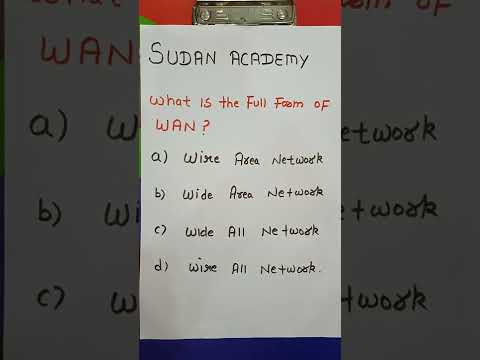 SUDAN ACADEMY
What is the Full Foom of
WAN?
a) Wire Area Network
b) Wide Area Network
c) Wide All Network
d) Wire All Network.